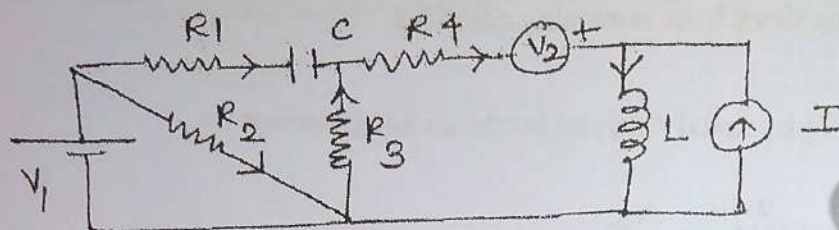 R1 C R4 V2 +
R2 R3 L I
V1